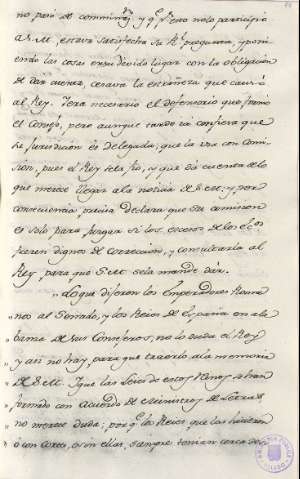 no pero de comunion, y q.e esto no lo participio
a S.M. estava satisfecha su R.l pregunta, y poni
endo las cosas en su devido lugar con la obligacion
de dar cuenta, cesava la extrañeza que causó
al Rey. Será necesario el defensorio que formó
el Consejo, pero aunque tarde ia confiesa que
la jurisdicion es delegada, que la usa con Comi-
sion, pues el Rey se la fio, y que dá cuenta de lo
que merece llegar a la noticia de S.M. y por
consecuencia precisa declara que su comision
es solo para juzgar si los excesos de los
fueren dignos de correccion, y consultarlo al
Rey para que S.M. se la mande dár.
" Lo que dijeron los Emperadores Roma
" nos al Senado, y los Reies de España en ala
" banza de sus Consejeros, no lo duda el Rey
" y asi no hay para que traerlo a la memoria
" de S.M. Y que las Leies de estos Reinos se han
" formado con Acuerdo de Ministros de Letras,
" no merece duda; porq.e los Reies que las hicieron
" ó con Cortes, ó sin ellas, siempre tenian cerca de